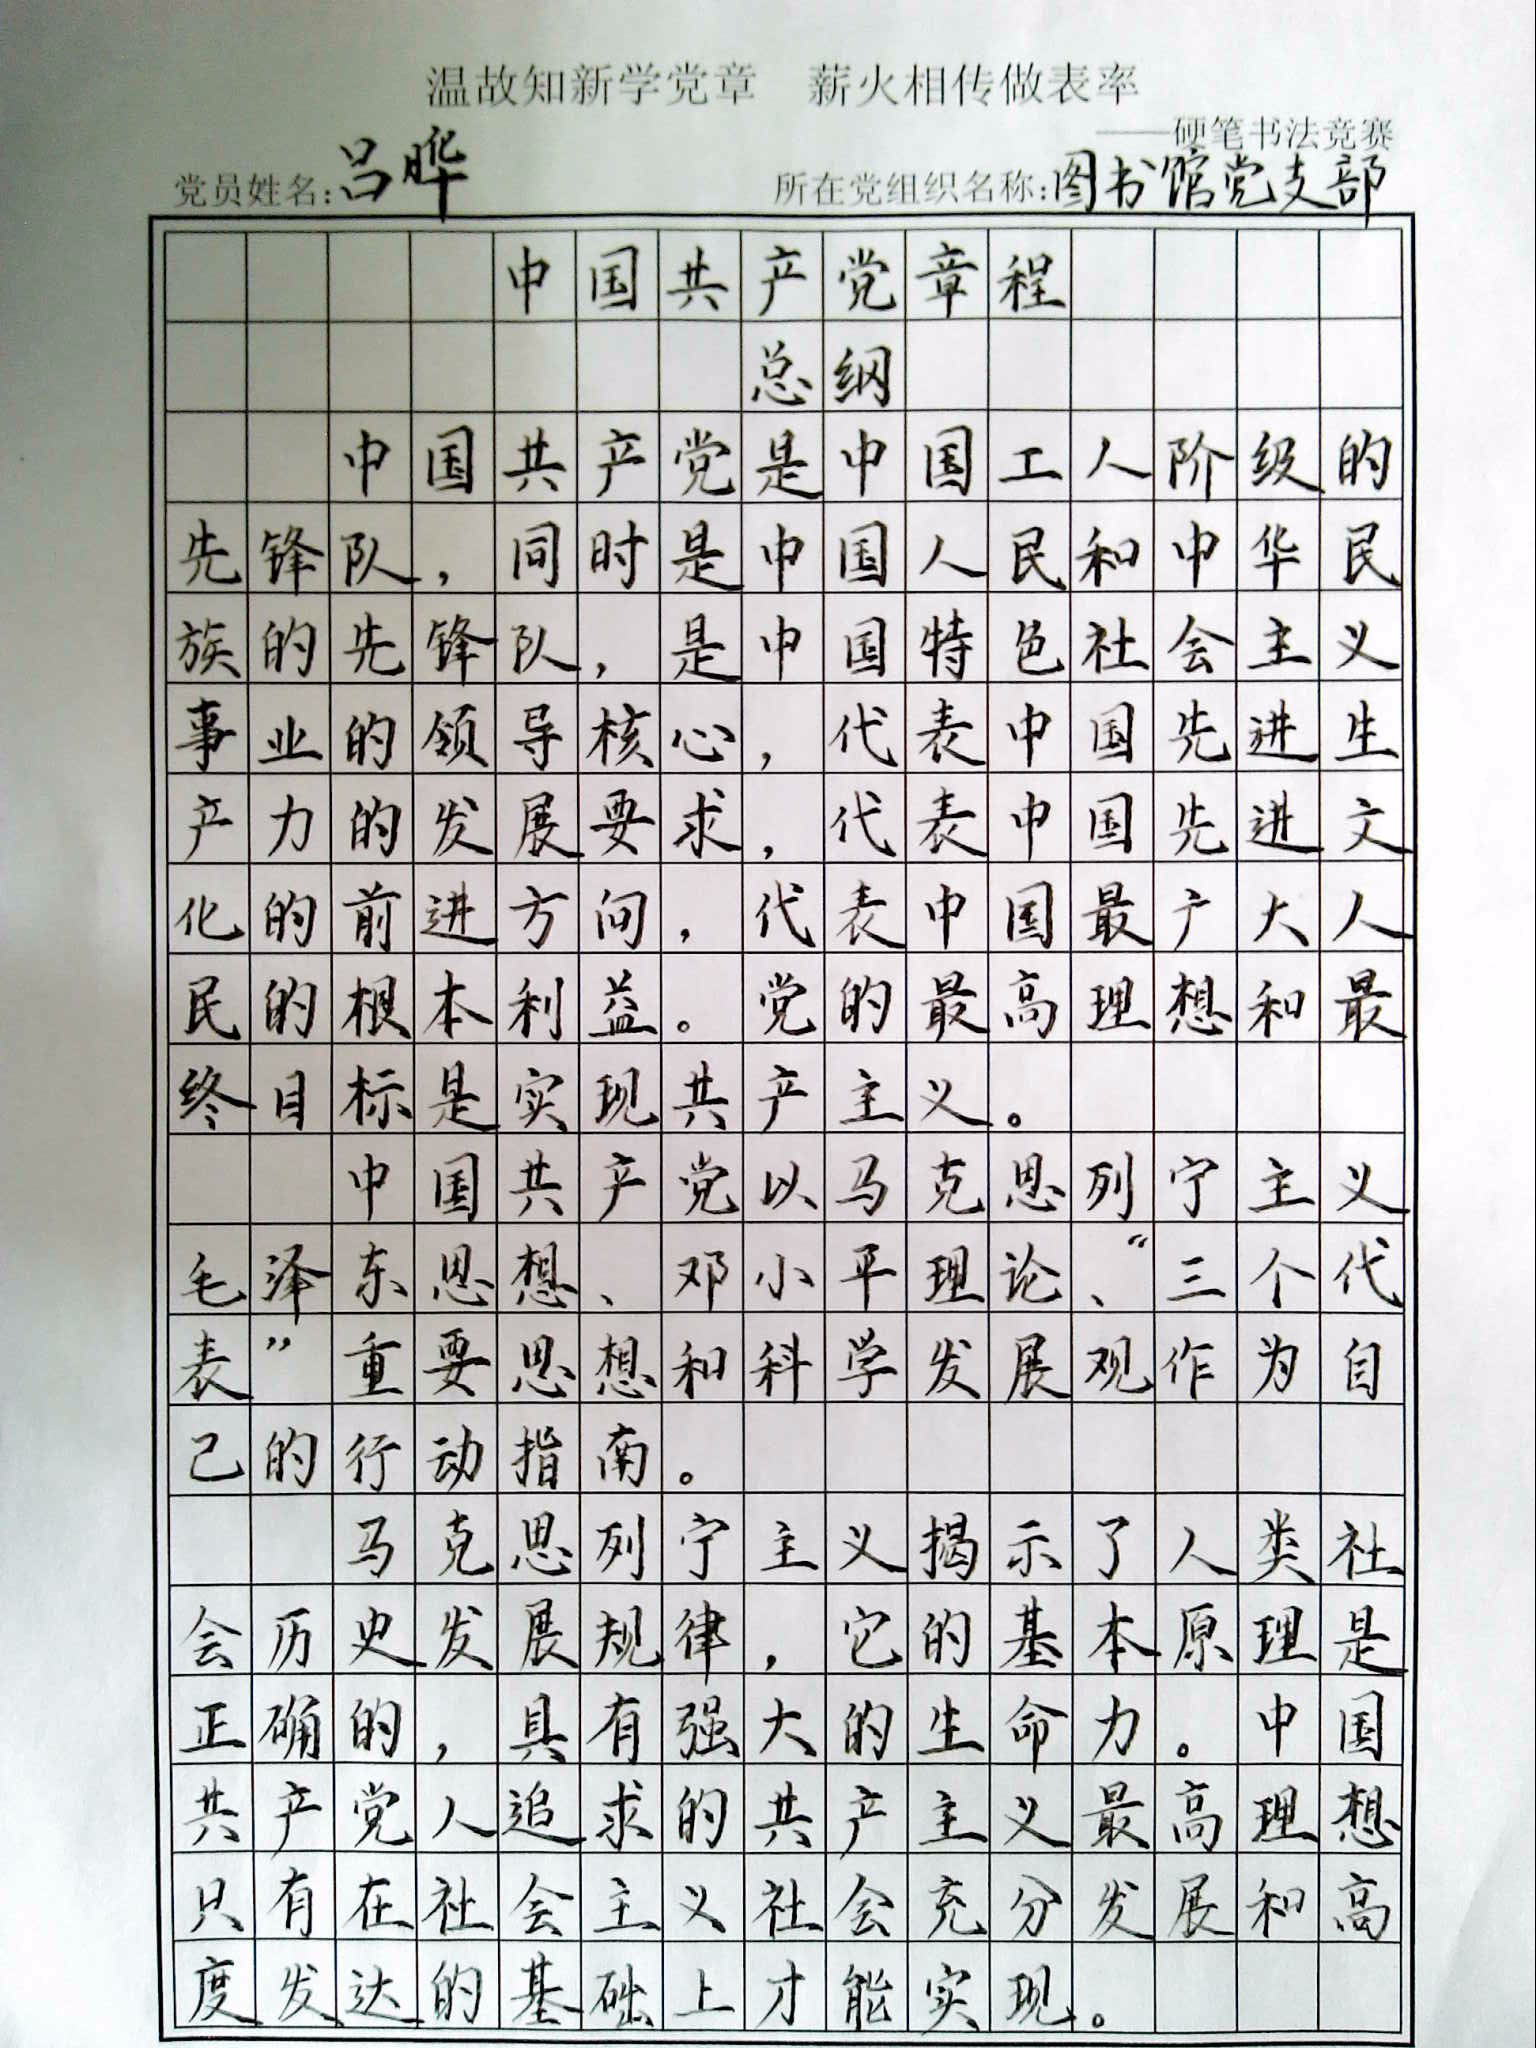 温故知新学党章 薪火相传做表率
——硬笔书法竞赛
党员姓名:吕晔 所在党组织名称:图书馆党支部
中国共产党章程
总纲
中国共产党是中国工人阶级的
先锋队，同时是中国人民和中华民
族的先锋队，是中国特色社会主义
事业的领导核心，代表中国先进生
产力的发展要求，代表中国先进文
化的前进方向，代表中国最广大人
民的根本利益。党的最高理想和最
终目标是实现共产主义。
中国共产党以马克思列宁主义
毛泽东思想、邓小平理论、“三个代
表”重要思想和科学发展观作为自
己的行动指南。
马克思列宁主义揭示了人类社
会历史发展规律，它的基本原理是
正确的，具有强大的生命力。中国
共产党人追求的共产主义最高理想
只有在社会主义社会充分发展和高
度发达的基础上才能实现。